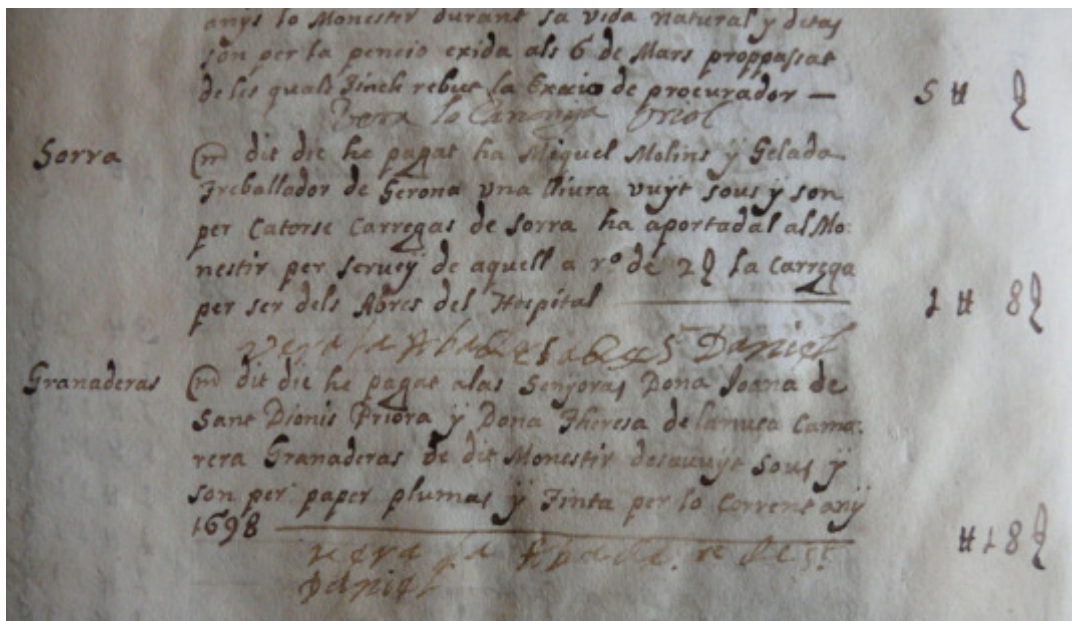 anys lo Monestir durant sa vida natural y ditas
son per la pencio exida als 6 de Mars proppassat
de les quals Tinch rebut la de procurador — 5 ₶ ẞ
lo Canonja Oriol
Sorra En dit die he pagat ha Miquel Molins y Gelada
Treballador de Gerona una lliura vuyt sous y son
per Catorse Carregas de sorra ha aportadal al Mo:
nestir per servey de aquell a rº de 2ẞ la Carrega
per ser dels Abres del Hospital 1 ₶ 8ẞ
Daniel
Granaderas En dit die he pagat alas Senyoras Dona Joana de
Sant Dionis Priora y Dona Theresa de lanuca Cama:
rera Granaderas de dit Monestir desavuyt sous y
son per paper plumas y Tinta per lo Corrent any
1698 ₶ 18ẞ
Daniel